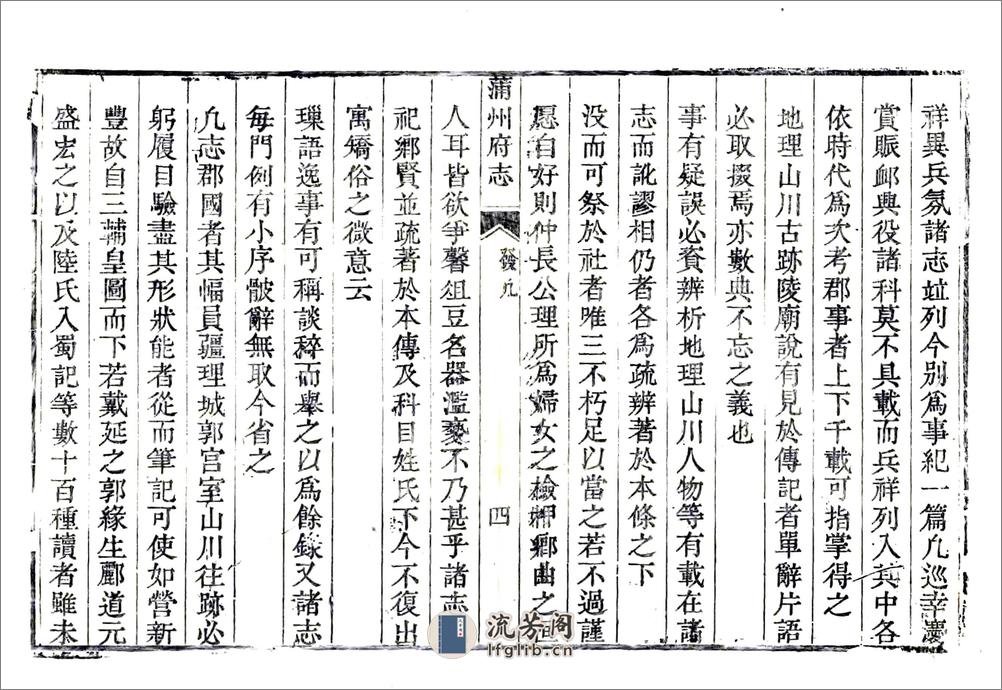 祥異兵氛諸志竝列今别爲事紀一篇凢巡幸慶
賞賑䘏興役諸科莫不具載而兵祥列入其中各
依時代爲次考郡事者上下千載可指掌得之
地理山川古跡陵廟說有見於傳記者單辭片語
必取掇焉亦數典不忘之義也
事有疑誤必資辨析地理山川人物等有載在諸
志而訛謬相仍者各爲疏辨著於本條之下
没而可祭於社者唯三不朽足以當之若不過謹
愿自好則仲長公理所爲婦女之檢柙鄉曲之
蒲州府志
發凢
四
人耳皆欲爭馨俎豆名器濫䙝不乃甚乎諸志
祀鄉賢並疏著於本傳及科目姓氏下今不復出
寓矯俗之微意云
璅語逸事有可稱談稡而舉之以爲餘錄又諸志
每門例有小序骳辭無取今省之
凢志郡國者其幅員疆理城郭宫室山川往跡必
躬履目驗盡其形狀能者從而筆記可使如營新
豐故自三輔皇圖而下若戴延之郭緣生酈道元
盛宏之以及陸氏入蜀記等數十百種讀者雖未
流芳阁
lfglib.cn